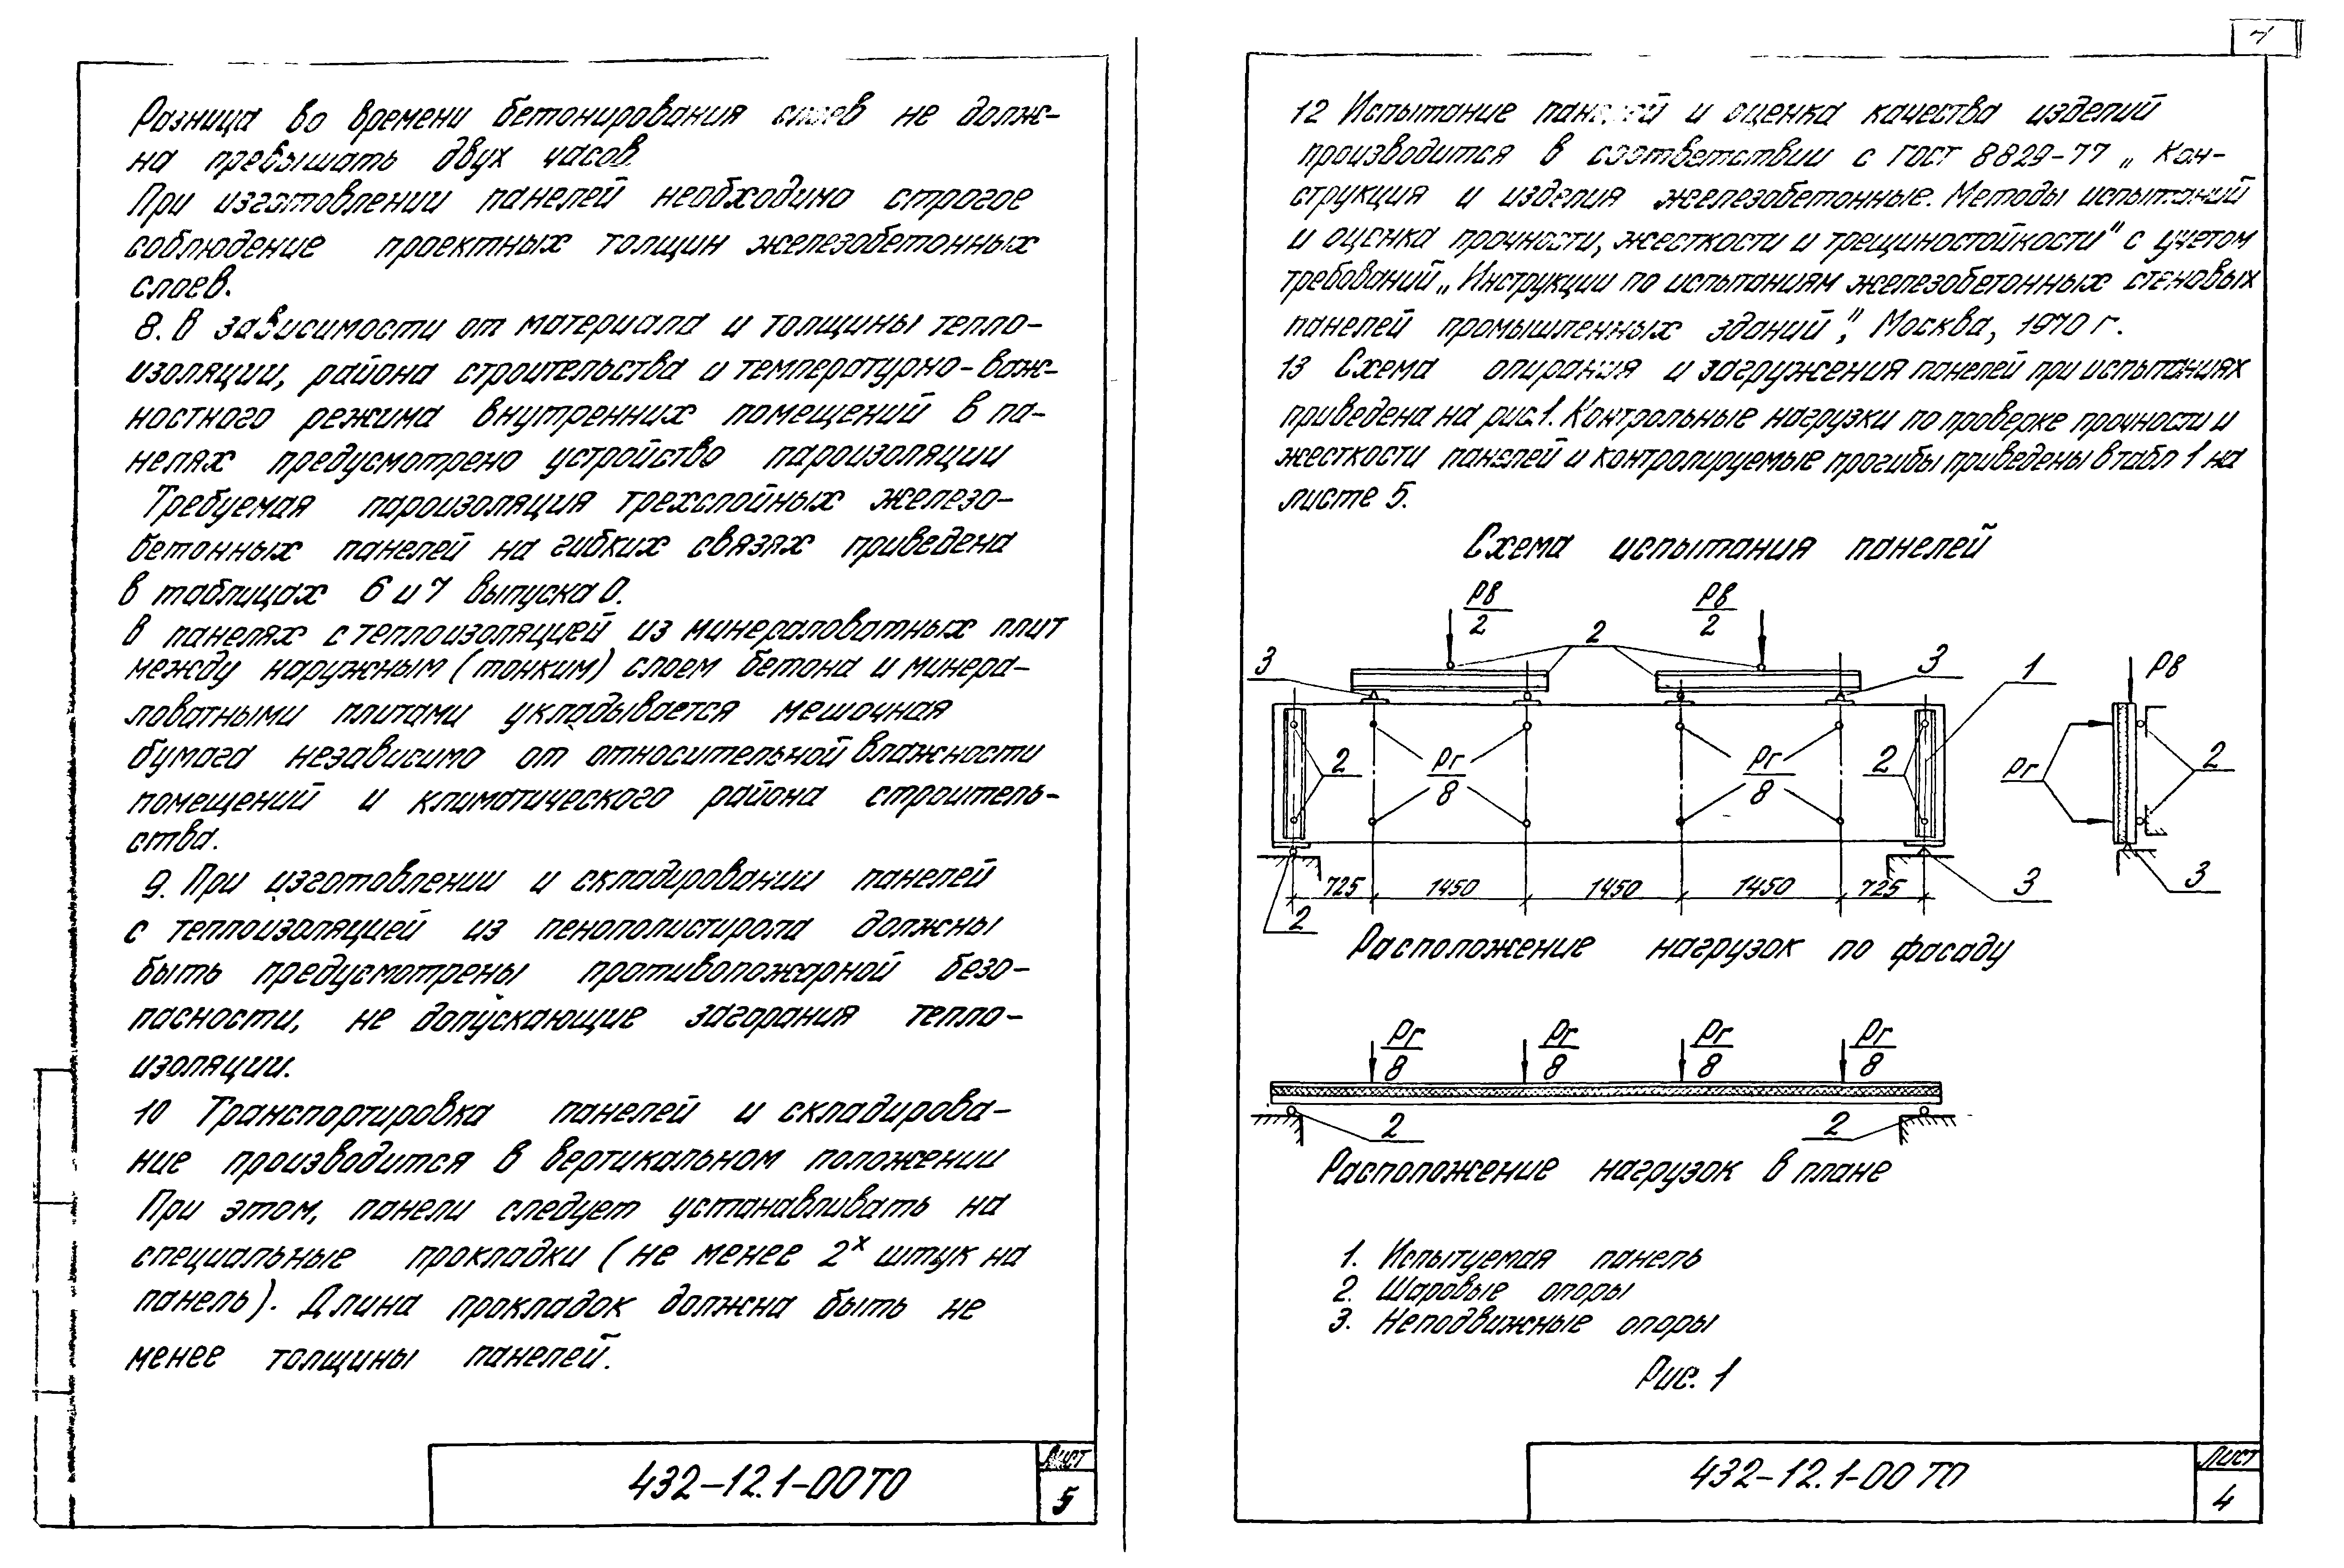 Разница во времени бетонирования слоев не долж-
на превышать двух часов.
При изготовлении панелей необходимо строгое
соблюдение проектных толщин железобетонных
слоев.
8. В зависимости от материала и толщины тепло-
изоляции, района строительства и температурно-влаж-
ностного режима внутренних помещений в па-
нелях предусмотрено устройство пароизоляции
Требуемая пароизоляция трехслойных железо-
бетонных панелей на гибких связях приведена
в таблицах 6 и 7 выпуска 0.
В панелях с теплоизоляцией из минераловатных плит
между наружным (тонким) слоем бетона и минера-
ловатными плитами укладывается мешочная
бумага независимо от относительной влажности
помещений и климатического района строитель-
ства.
9. При изготовлении и складировании панелей
с теплоизоляцией из пенополистирола должны
быть предусмотрены противопожарной безо-
пасности, не допускающие загорания тепло-
изоляции.
10 Транспортировка панелей и складирова-
ние производится в вертикальном положении
При этом, панели следует устанавливать на
специальные прокладки (не менее 2х штук на
панель). Длина прокладок должна быть не
менее толщины панелей.
432-12.1-00ТО
Лист
5
7
12 Испытание панелей и оценка качества изделий
производится в соответствии с ГОСТ 8829-77 „Кон-
струкция и изделия железобетонные. Методы испытаний
и оценка прочности, жесткости и трещиностойкости" с учетом
требований „Инструкции по испытаниям железобетонных стеновых
панелей промышленных зданий", Москва, 1970 г.
13 Схема опирания и загружения панелей при испытаниях
приведена на рис.1. Контрольные нагрузки по проверке прочности и
жесткости панелей и контролируемые прогибы приведены в табл 1 на
листе 5.
Схема испытания панелей
Рв/2 Рв/2
3 2 3 1 Рв
2 Рг/8 Рг/8 2 Рг 2
725 1450 1450 1450 725 3 3
2
Расположение нагрузок по фасаду
Рг/8 Рг/8 Рг/8 Рг/8
2 2
Расположение нагрузок в плане
1. Испытуемая панель
2. Шаровые опоры
3. Неподвижные опоры
Рис. 1
432-12.1-00 ТО
Лист
4